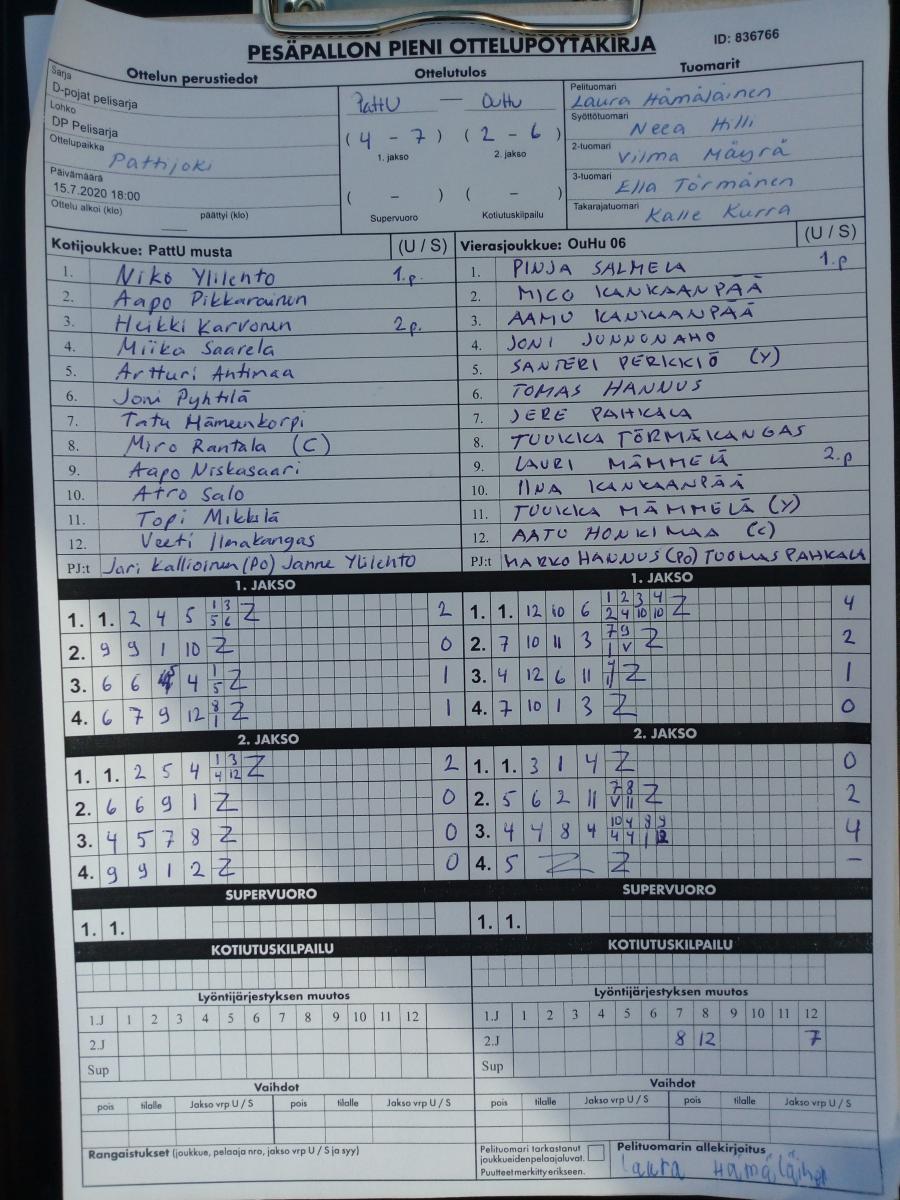 PESÄPALLON PIENI OTTELUPÖYTÄKIRJA
ID: 836766
Ottelun perustiedot
Sarja
D-pojat pelisarja
Lohko
DP Pelisarja
Ottelupaikka
Pattijoki
Päivämäärä
15.7.2020 18:00
Ottelu alkoi (klo) päättyi (klo)
Ottelutulos
PattU — OuHu
( 4 - 7 ) ( 2 - 6 )
1. jakso 2. jakso
( - ) ( - )
Supervuoro Kotiutuskilpailu
Tuomarit
Pelituomari
Laura Hämäläinen
Syöttötuomari
Neea Hilli
2-tuomari
Vilma Mäyrä
3-tuomari
Ella Törmänen
Takarajatuomari
Kalle Kurra
Kotijoukkue: PattU musta (U / S)
1. Niko Ylilehto 1.p.
2. Aapo Pikkarainen
3. Heikki Karvonen 2p.
4. Miika Saarela
5. Artturi Antinaa
6. Joni Pyhtilä
7. Tatu Hämeenkorpi
8. Miro Rantala (C)
9. Aapo Niskasaari
10. Atro Salo
11. Topi Mikkilä
12. Veeti Ilmakangas
PJ:t Jari Kallioinen (PO) Janne Ylilehto
Vierasjoukkue: OuHu 06 (U / S)
1. PINJA SALMELA 1.p
2. MICO KANKAANPÄÄ
3. AAMU KANKAANPÄÄ
4. JONI JUNNONAHO
5. SANTERI PERKKIÖ (Y)
6. TOMAS HANNUS
7. JERE PAHKALA
8. TUUKKA TÖRMÄKANGAS
9. LAURI MÄMMELÄ 2.p
10. IINA KANKAANPÄÄ
11. TUUKKA MÄMMELÄ (Y)
12. AATU HONKIMAA (C)
PJ:t MARKO HANNUS (PO) TUOMAS PAHKALA
1. JAKSO
1. 1. 2 4 5 1 3 Z 2
5 6
2. 9 9 1 10 Z 0
3. 6 6 4 1 Z 1
5
4. 6 7 9 12 8 Z 1
1
1. JAKSO
1. 1. 12 10 6 1 2 3 4 Z 4
2 4 10 10
2. 7 10 11 3 7 9 Z 2
1 V
3. 4 12 6 11 Z 1
4. 7 10 1 3 Z 0
2. JAKSO
1. 1. 2 5 4 1 3 Z 2
4 12
2. 6 6 9 1 Z 0
3. 4 5 7 8 Z 0
4. 9 9 1 2 Z 0
2. JAKSO
1. 1. 3 1 4 Z 0
2. 5 6 2 11 7 8 Z 2
V 11
3. 4 4 8 4 10 4 8 9 4
4 4 1 12
4. 5 Z Z –
SUPERVUORO
1. 1.
SUPERVUORO
1. 1.
KOTIUTUSKILPAILU
KOTIUTUSKILPAILU
Lyöntijärjestyksen muutos
1.J 1 2 3 4 5 6 7 8 9 10 11 12
2.J
Sup
Lyöntijärjestyksen muutos
1.J 1 2 3 4 5 6 7 8 9 10 11 12
2.J 8 12 7
Sup
Vaihdot
pois tilalle Jakso vrp U / S pois tilalle Jakso vrp U / S
Vaihdot
pois tilalle Jakso vrp U / S pois tilalle Jakso vrp U / S
Rangaistukset (joukkue, pelaaja nro, jakso vrp U / S ja syy)
Pelituomari tarkastanut
joukkueidenpelaajaluvat.
Puutteet merkitty erikseen.
Pelituomarin allekirjoitus
Laura Hämäläinen